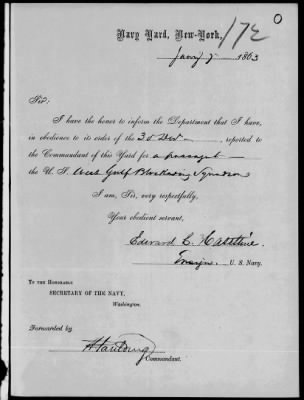 Navy Yard, New-York,
172
Jany 7 1863
Sir:
I have the honor to inform the Department that I have,
in obedience to its order of the 30 Dec. reported to
the Commandant of this Yard for a passage to
the U. S. West Gulf Blockading Squadron
I am, Sir, very respectfully,
Your obedient servant,
Edward C.
Ensign. U. S. Navy.
To the Honorable
SECRETARY OF THE NAVY,
Washington.
Forwarded by
Commandant.